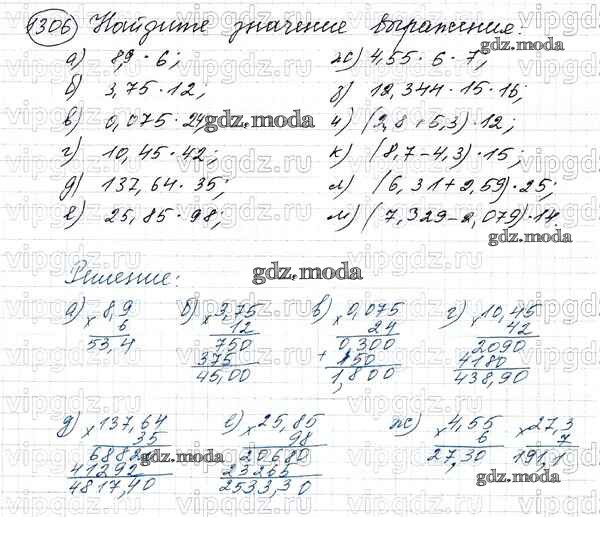 1306 Найдите значение выражения:
а) 8,9 · 6; ж) 4,55 · 6 · 7;
б) 3,75 · 12; з) 12,344 · 15 · 16;
в) 0,075 · 24; и) (2,8 + 5,3) · 12;
г) 10,45 · 42; к) (8,7 – 4,3) · 15;
д) 137,64 · 35; л) (6,31 + 2,59) · 25;
е) 25,85 · 98; м) (7,329 – 2,079) · 14.
Решение:
а) × 8,9 б) × 3,75 в) × 0,075 г) × 10,45
6 12 24 42
53,4 750 0,300 2090
375 + 150 4180
45,00 1,800 438,90
д) × 137,64 е) × 25,85 ж) × 4,55 × 27,3
35 98 6 7
68820 20680 27,30 191,1
41292 23265
4817,40 2533,30
gdz.moda
gdz.moda
gdz.moda
gdz.moda
gdz.moda
gdz.moda
gdz.moda
vipgdz.ru